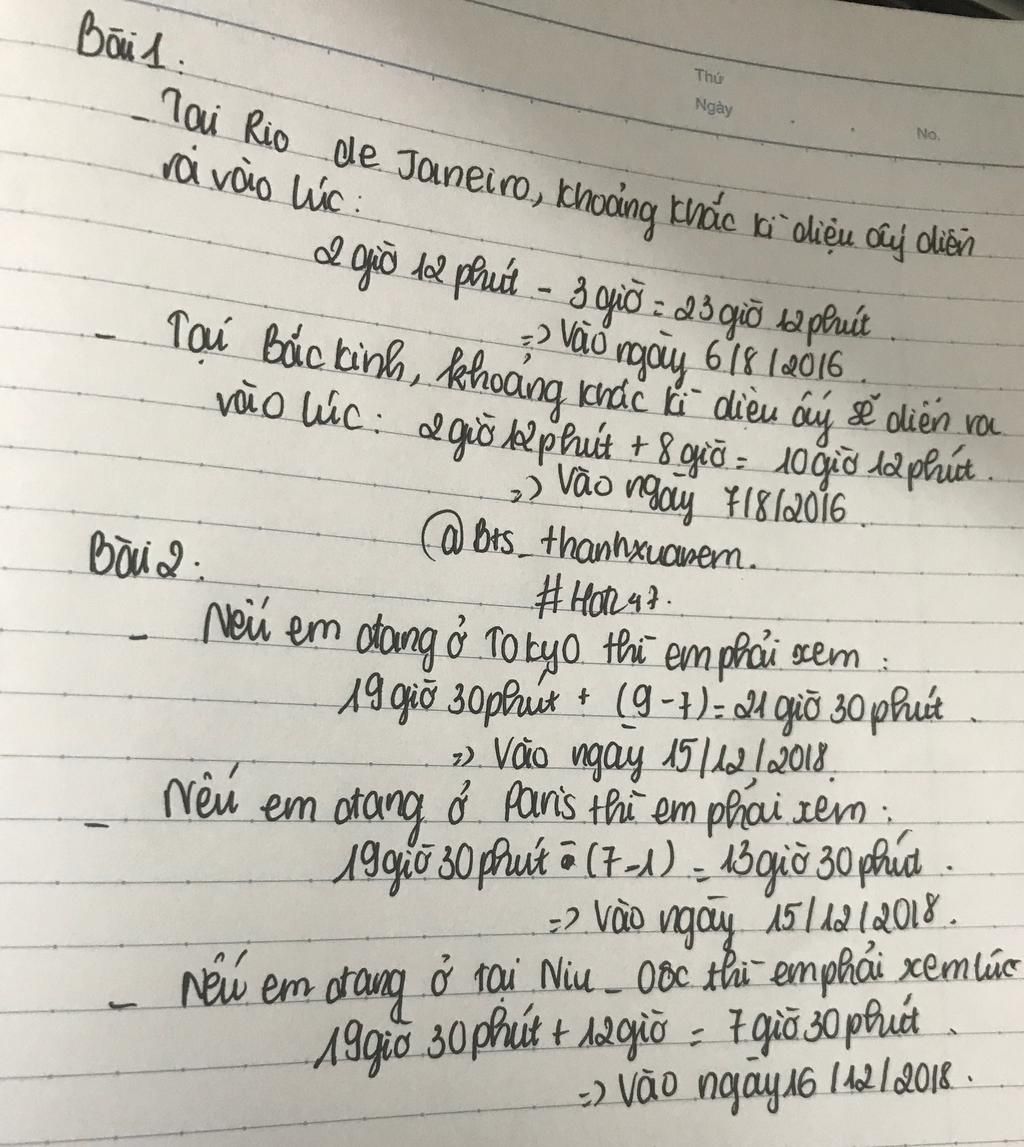 Thứ
Ngày
No.
Bài 1:
- Tại Rio de Janeiro, khoảng khắc kì diệu ấy diễn
ra vào lúc:
2 giờ 12 phút - 3 giờ = 23 giờ 12 phút.
=> Vào ngày 6/8/2016.
- Tại Bắc kinh, khoảng khắc kì diệu ấy sẽ diễn ra
vào lúc: 2 giờ 12 phút + 8 giờ = 10 giờ 12 phút.
=> Vào ngày 7/8/2016.
@Bts_thanhxuanem.
Bài 2:
#Hoz47.
- Nếu em đang ở Tokyo thì em phải xem:
19 giờ 30 phút + (9-7) = 21 giờ 30 phút.
=> Vào ngày 15/12/2018.
- Nếu em đang ở Paris thì em phải xem:
19 giờ 30 phút - (7-1) = 13 giờ 30 phút.
=> Vào ngày 15/12/2018.
- Nếu em đang ở tại Niu_Oóc thì em phải xem lúc
19 giờ 30 phút + 12 giờ = 7 giờ 30 phút.
=> Vào ngày 16/12/2018.